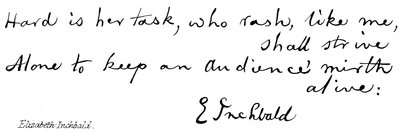 Hard is her task, who rash, like me,
shall strive
Alone to keep an Audience' mirth
alive:
E Inchbald
Elizabeth Inchbald.